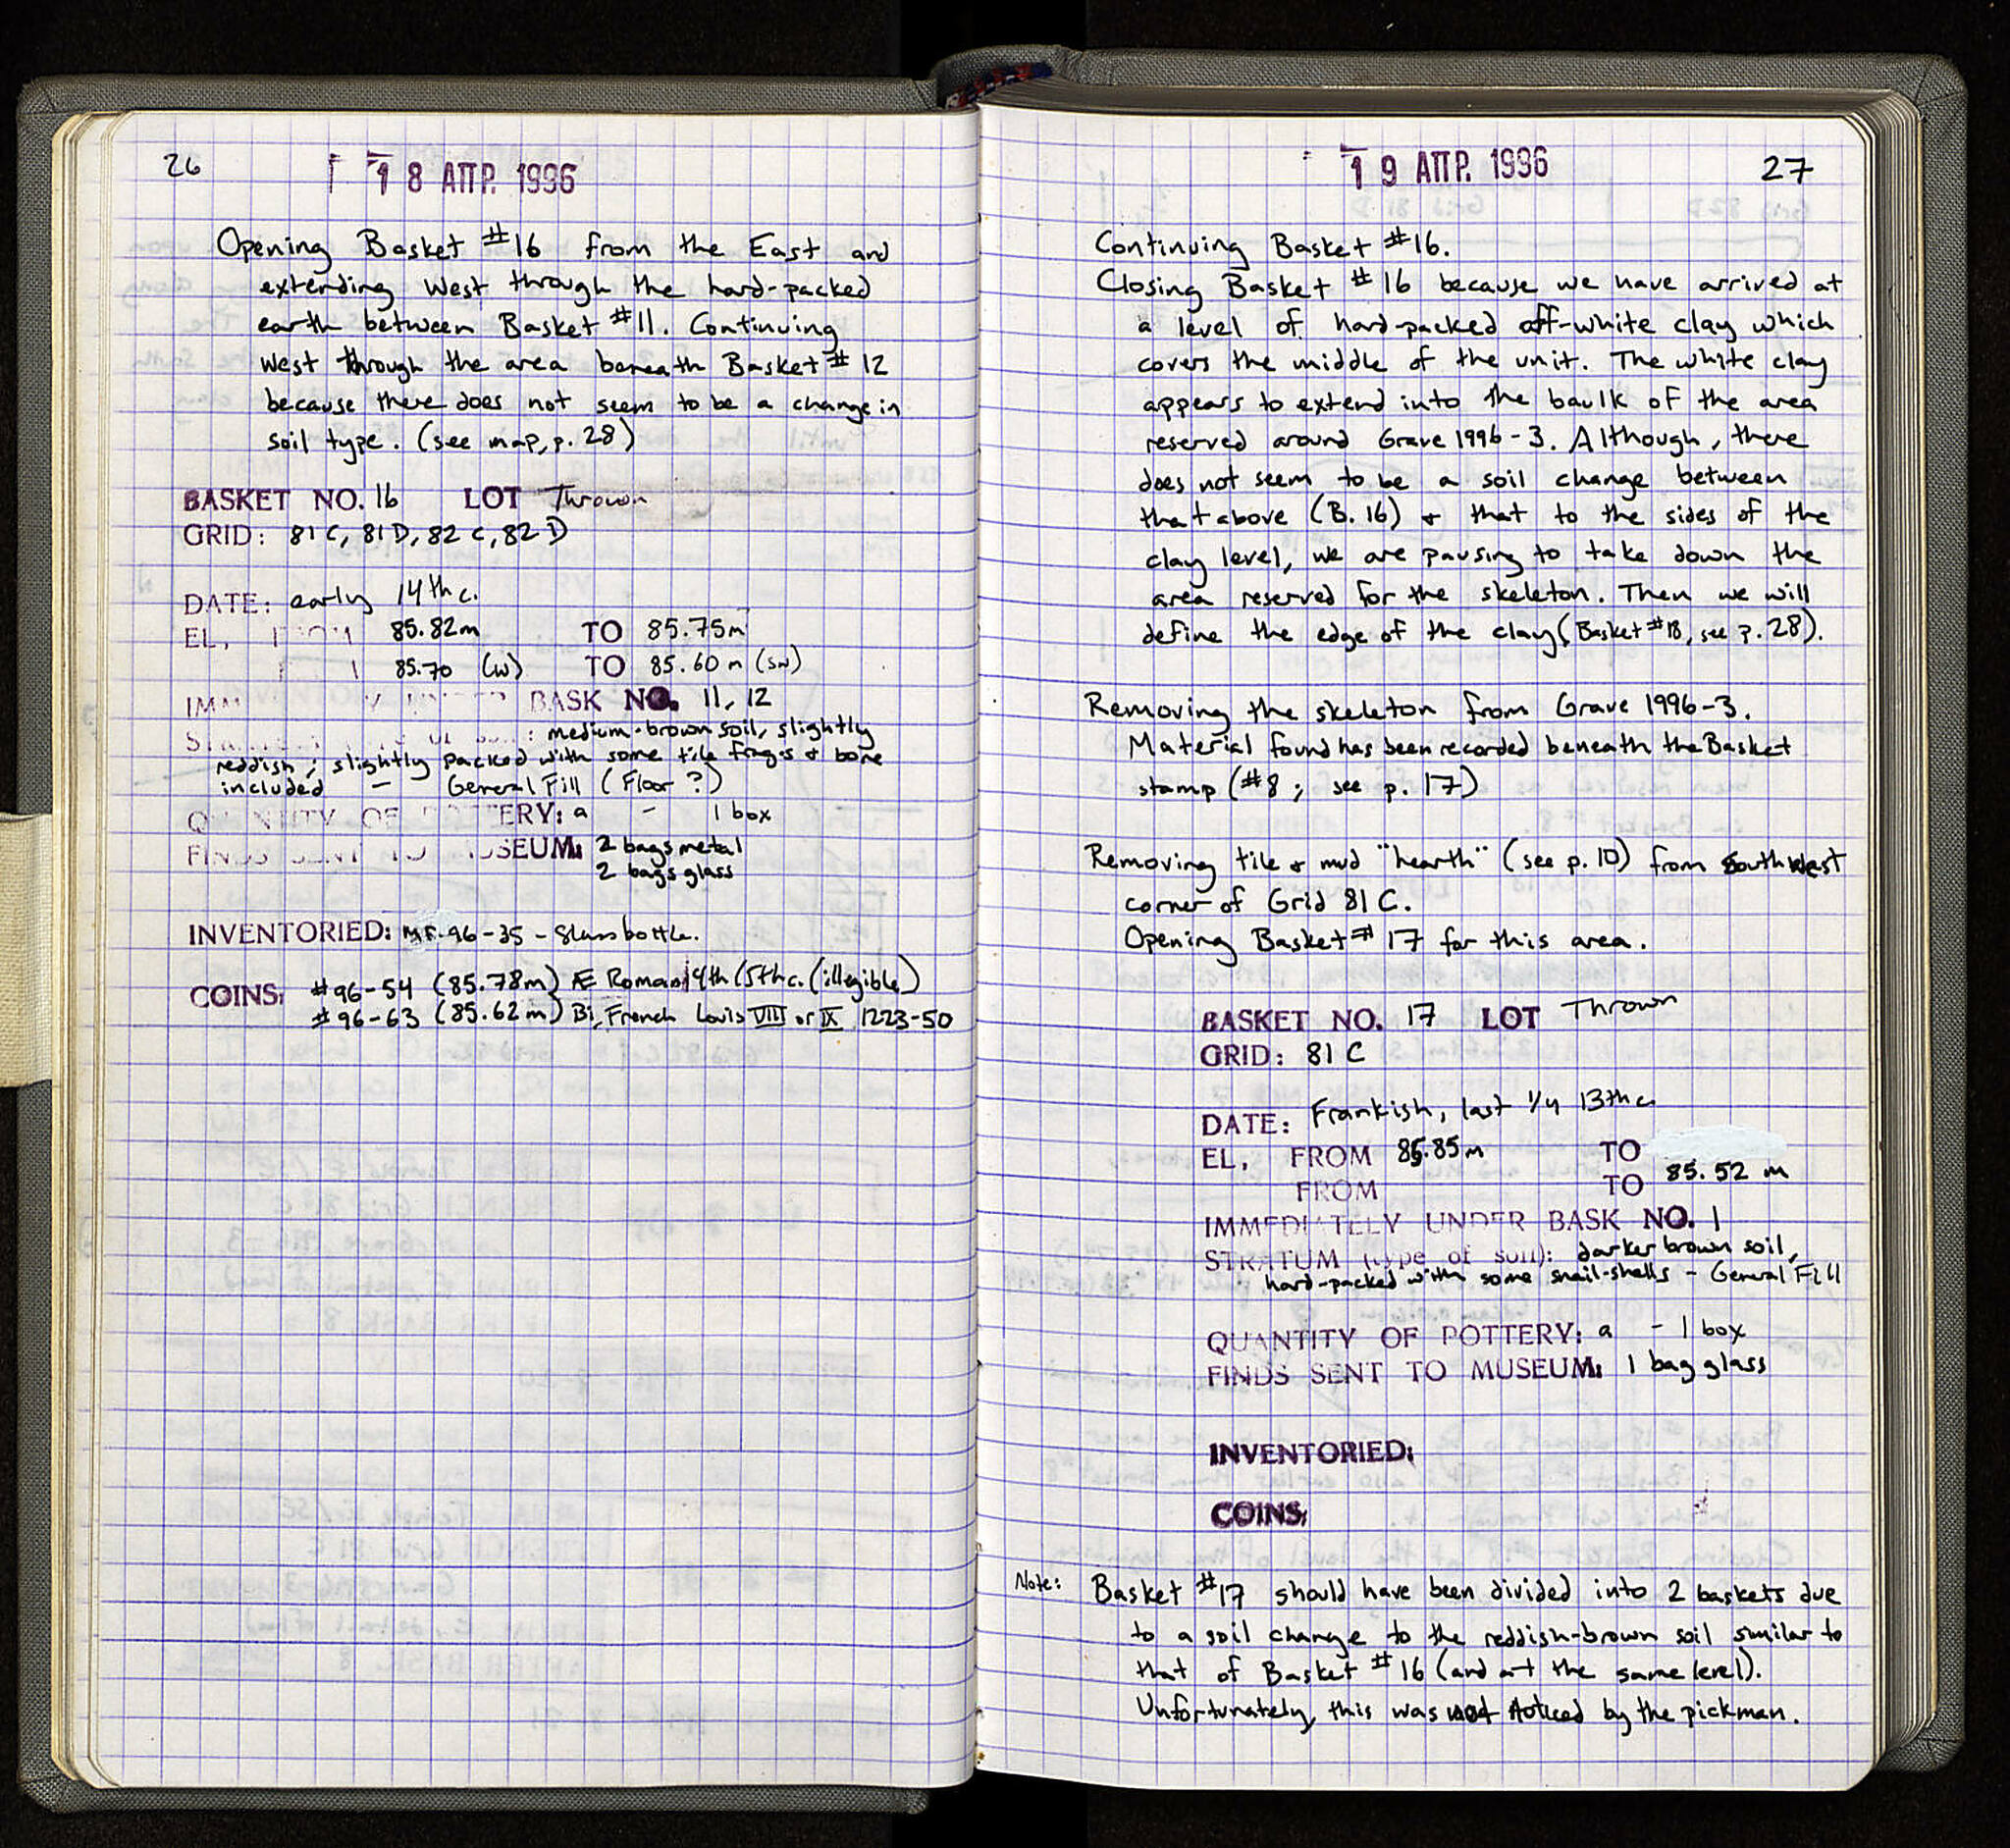 26
18 ΑΠΡ. 1996
Opening Basket #16 from the East and
extending West through the hard-packed
earth between Basket #11. Continuing
West through the area beneath Basket #12
because there does not seem to be a change in
soil type. (see map, p.28)
BASKET NO. 16 LOT Thrown
GRID: 81 C, 81 D, 82 C, 82 D
DATE: early 14th c.
EL, FROM 85.82m TO 85.75m
85.70 (W) TO 85.60 m (SW)
IMM BASK NO. 11, 12
medium-brown soil, slightly
reddish; slightly packed with some tile frags & bone
included — General Fill (Floor?)
QUANTITY OF POTTERY: a - 1 box
FINDS SENT TO MUSEUM: 2 bags metal
2 bags glass
INVENTORIED: MF-96-35 - Glass bottle.
COINS: #96-54 (85.78m) Æ Roman 4th/5th c. (illegible)
#96-63 (85.62m) Bi, French Louis VIII or IX 1223-50
19 ΑΠΡ. 1996
27
Continuing Basket #16.
Closing Basket #16 because we have arrived at
a level of hard-packed off-white clay which
covers the middle of the unit. The white clay
appears to extend into the baulk of the area
reserved around Grave 1996-3. Although, there
does not seem to be a soil change between
that above (B.16) & that to the sides of the
clay level, we are pausing to take down the
area reserved for the skeleton. Then we will
define the edge of the clay (Basket #18, see p.28).
Removing the skeleton from Grave 1996-3.
Material found has been recorded beneath the Basket
stamp (#8; see p. 17)
Removing tile & mud "hearth" (see p.10) from Southwest
corner of Grid 81 C.
Opening Basket #17 for this area.
BASKET NO. 17 LOT Thrown
GRID: 81 C
DATE: Frankish, last 1/4 13th c.
EL, FROM 85.85m TO
FROM TO 85.52 m
IMMEDIATELY UNDER BASK NO. 1
STRATUM (type of soil): darker brown soil,
hard-packed with some snail-shells - General Fill
QUANTITY OF POTTERY: a - 1 box
FINDS SENT TO MUSEUM: 1 bag glass
INVENTORIED:
COINS:
Note: Basket #17 should have been divided into 2 baskets due
to a soil change to the reddish-brown soil similar to
that of Basket #16 (and at the same level).
Unfortunately, this was not noticed by the pickman.